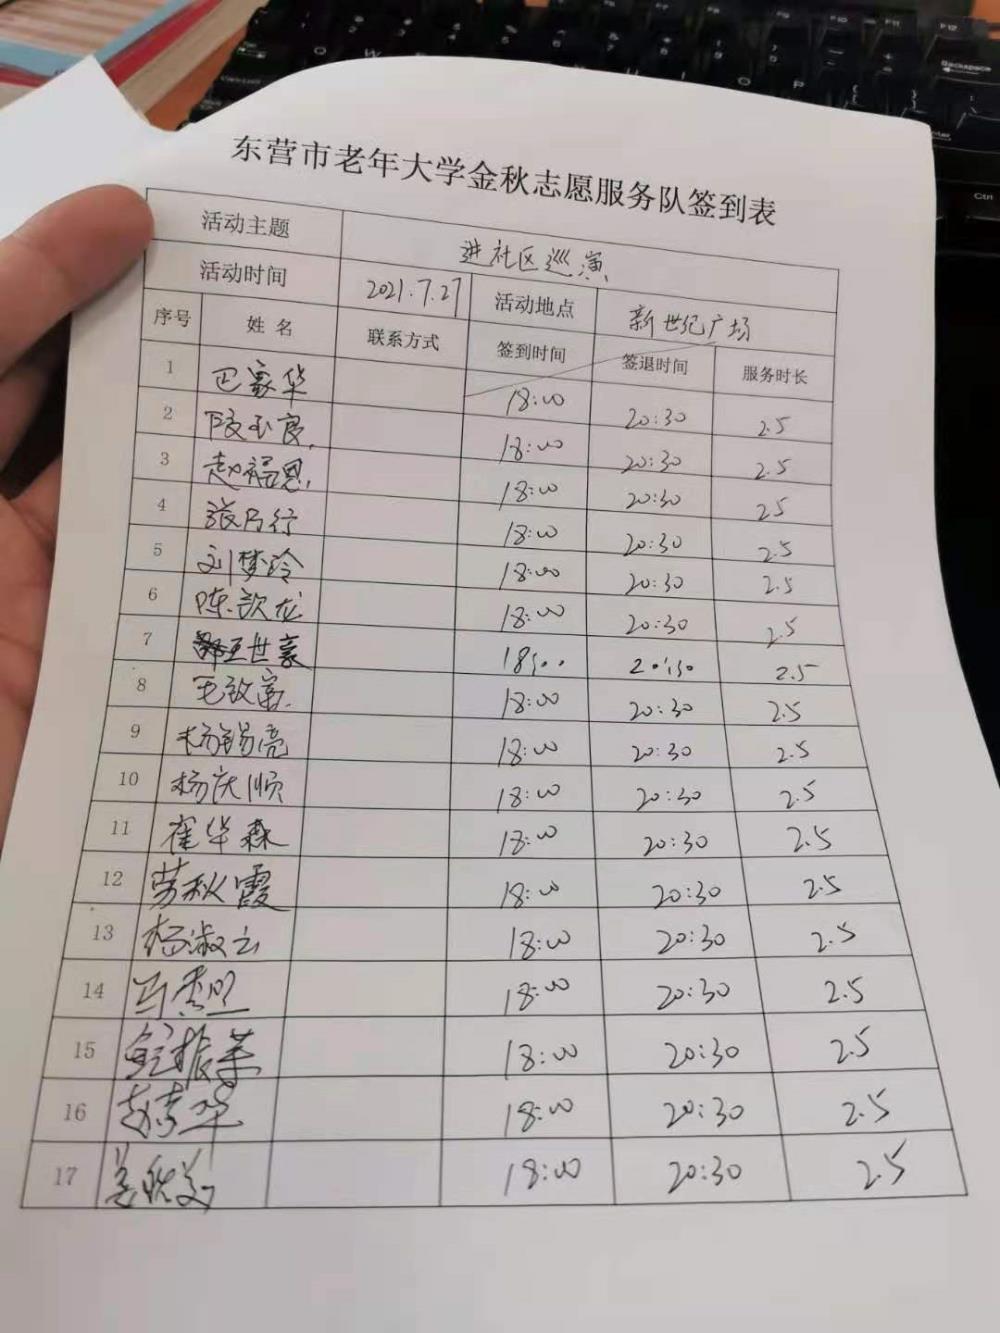 东营市老年大学金秋志愿服务队签到表
活动主题 进社区巡演
活动时间 2021.7.27 活动地点 新世纪广场
序号 姓名 联系方式 签到时间 签退时间 服务时长
1 巴家华 18:00 20:30 2.5
2 段玉良 18:00 20:30 2.5
3 赵福恩 18:00 20:30 2.5
4 张乃行 18:00 20:30 2.5
5 刘梦玲 18:00 20:30 2.5
6 陈龙 18:00 20:30 2.5
7 王世豪 18:00 20:30 2.5
8 毛效富 18:00 20:30 2.5
9 杨锡亮 18:00 20:30 2.5
10 杨庆顺 18:00 20:30 2.5
11 崔华森 18:00 20:30 2.5
12 劳秋霞 18:00 20:30 2.5
13 杨淑云 18:00 20:30 2.5
14 马 18:00 20:30 2.5
15 振 18:00 20:30 2.5
16 赵秀华 18:00 20:30 2.5
17 18:00 20:30 2.5
Backspace
Ctrl